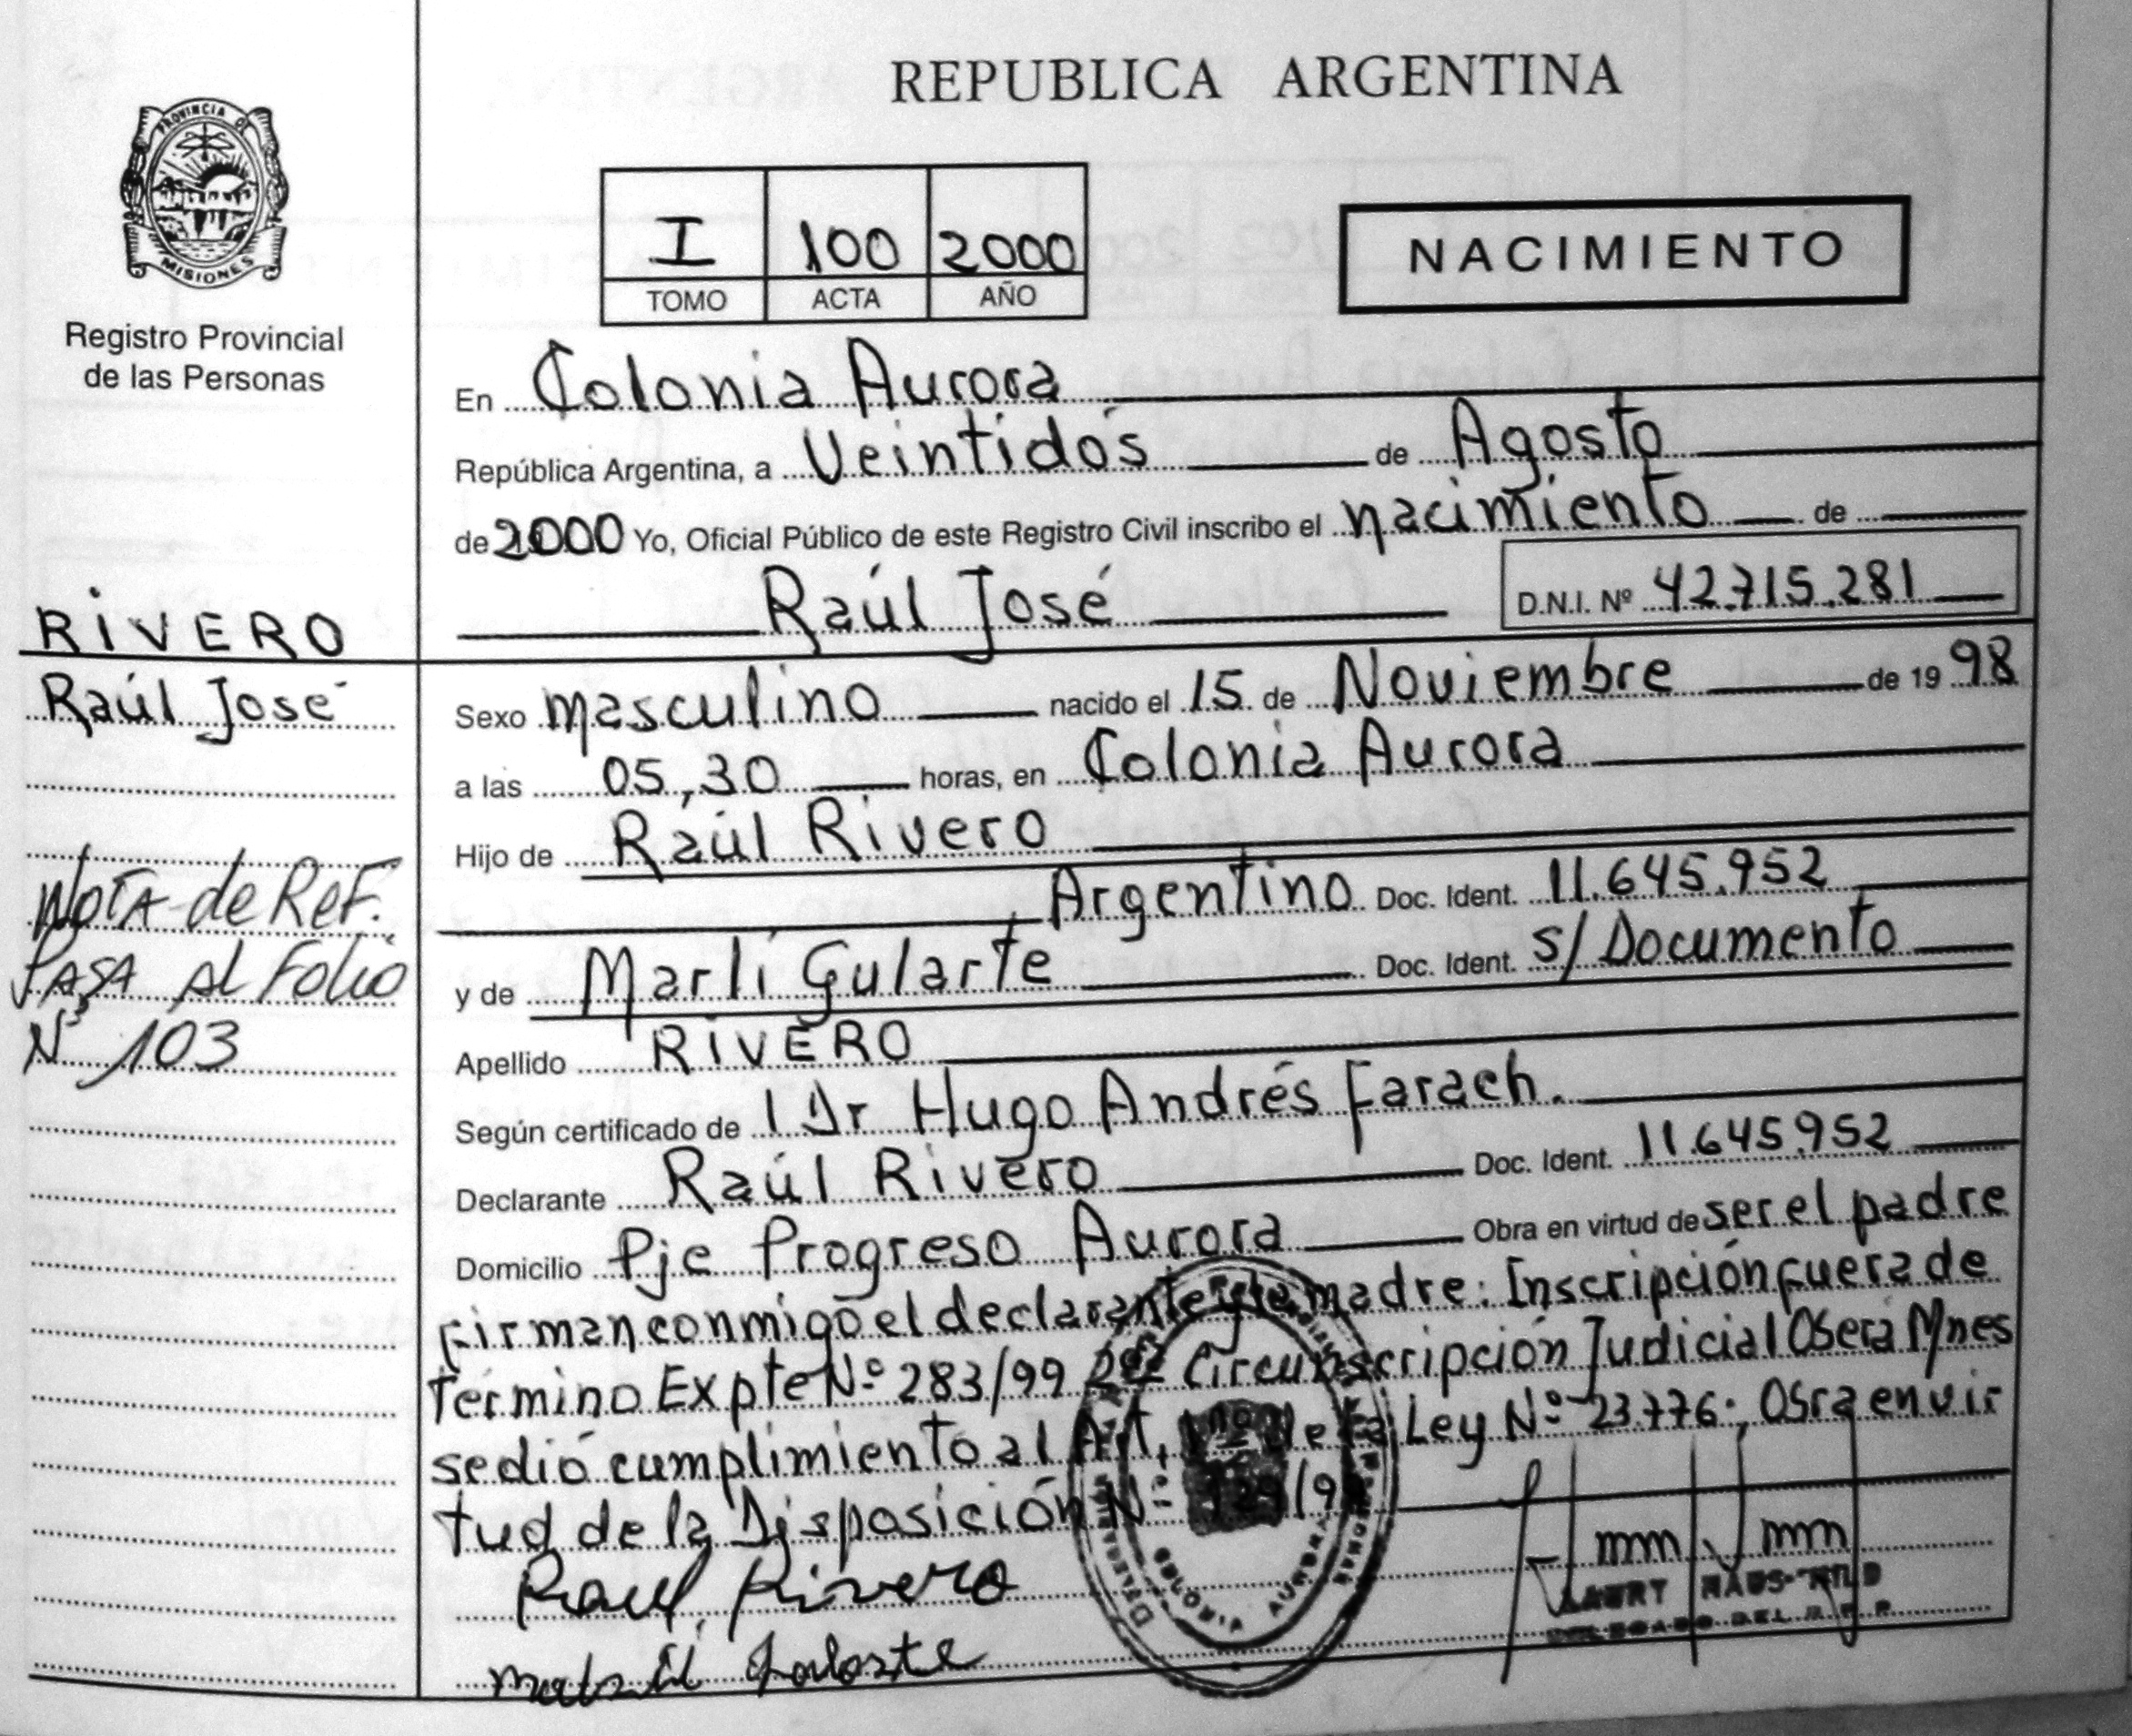 REPUBLICA ARGENTINA
PROVINCIA DE
MISIONES
Registro Provincial
de las Personas
I 100 2000
TOMO ACTA AÑO
NACIMIENTO
En Colonia Aurora
República Argentina, a Veintidós de Agosto
de 2000 Yo, Oficial Público de este Registro Civil inscribo el nacimiento de
Raúl José D.N.I. Nº 42.715.281
RIVERO
Raúl José
Sexo masculino nacido el 15 de Noviembre de 1998
a las 05,30 horas, en Colonia Aurora
Hijo de Raúl Rivero
Argentino Doc. Ident. 11.645.952
y de Marli Gularte Doc. Ident. s/ Documento
Apellido RIVERO
NOTA de REF.
PASA AL Folio
Nº 103
Según certificado de l Dr Hugo Andrés Farach.
Declarante Raúl Rivero Doc. Ident. 11.645.952
Domicilio Pje Progreso Aurora Obra en virtud de ser el padre
firman conmigo el declarante y la madre: Inscripción fuera de
término Expte Nº 283/99 2da Circunscripción Judicial Oberá Mnes
se dió cumplimiento al Art. de la Ley Nº 23.776; Obra en vir
tud de la Disposición Nº
Raul Rivero
COLONIA AURORA
DELEGADO DEL R. P. P.